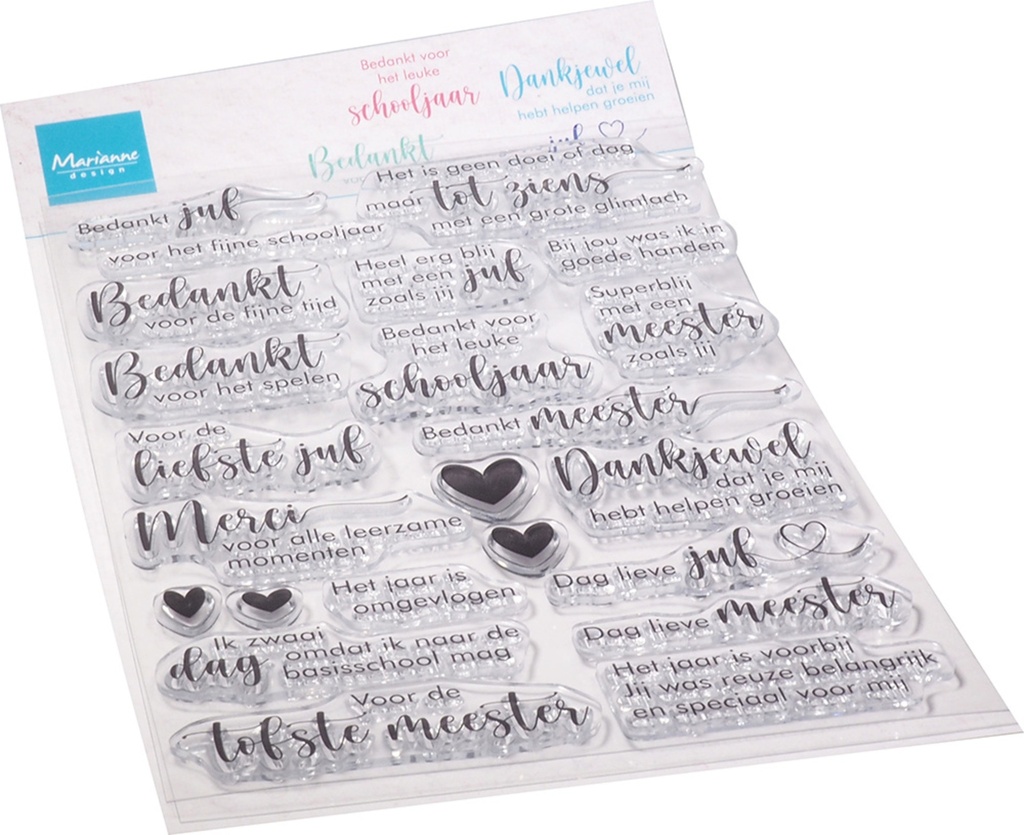 Bedankt voor
het leuke
schooljaar
Dankjewel
dat je mij
hebt helpen groeien
Marianne
design
Bedankt
juf
Het is geen doei of dag
maar tot ziens
met een grote glimlach
Bedankt juf
voor het fijne schooljaar
Heel erg blij
met een juf
zoals jij
Bij jou was ik in
goede handen
Bedankt
voor de fijne tijd
Superblij
met een
meester
zoals jij
Bedankt voor
het leuke
schooljaar
Bedankt
voor het spelen
Bedankt meester
Voor de
liefste juf
Dankjewel
dat je mij
hebt helpen groeien
Merci
voor alle leerzame
momenten
Dag lieve juf
Het jaar is
omgevlogen
Dag lieve meester
Ik zwaai
dag omdat ik naar de
basisschool mag
Het jaar is voorbij
Jij was reuze belangrijk
en speciaal voor mij
Voor de
tofste meester